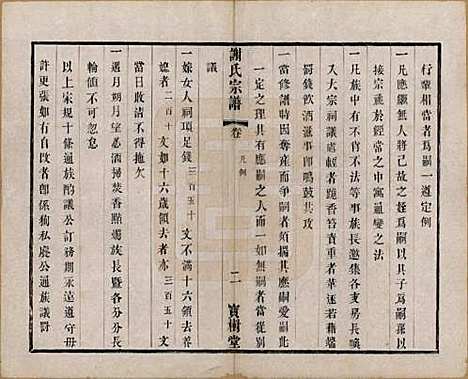 行輩相當者爲嗣一遵定例
一凡應繼無人將己故之姪爲嗣以其子爲嗣孫以
接宗祧於經常之中寓通變之法
一凡族中有不肖不法等事族長邀集各支房長喚
入大宗祠議處輕者跪香笞責重者革逐若藉端
罰錢飲酒滋事即鳴鼓共攻
一當修譜時因奪産而爭嗣者須照應嗣愛嗣此
一定之理其有應嗣之人而一如無嗣者當從別
議
謝氏宗譜
卷
凡例
二
寶樹堂
一嫁女人祠項足錢三百五十文不滿十六歲領去養
媳者二百十文如十六歲領去三百五十文
當日收清不得拖欠
一遇月朔月望必洒掃焚香點燭族長暨各分分長
輪值不可忽怠
以上宋規十條通族酌議公訂務期永遠遵守毋
許更張如有自改者即係狥私廢公通族議罰